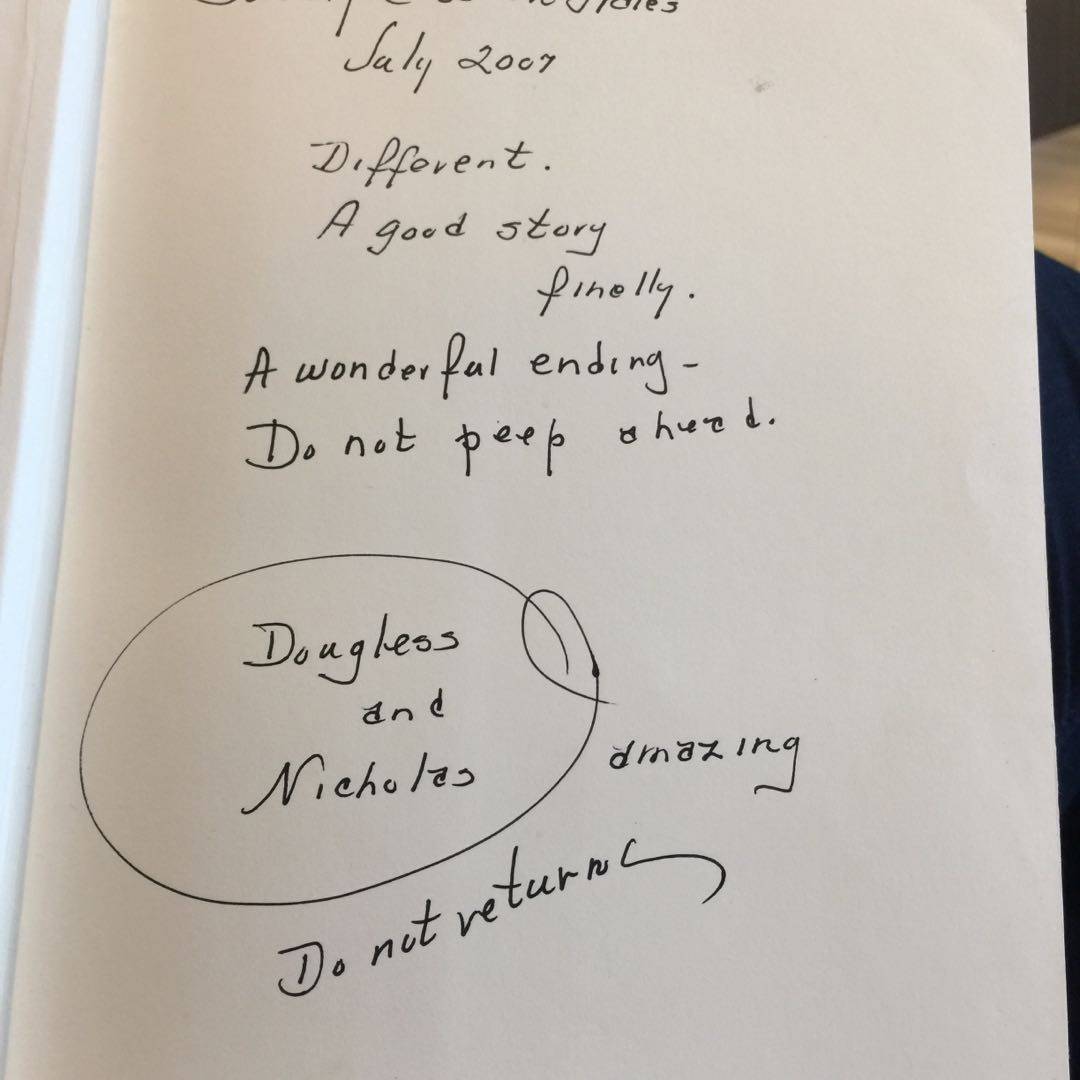 July 2007
Different.
A good story
finally.
A wonderful ending -
Do not peep ahead.
Dougless
and
Nicholas
amazing
Do not return